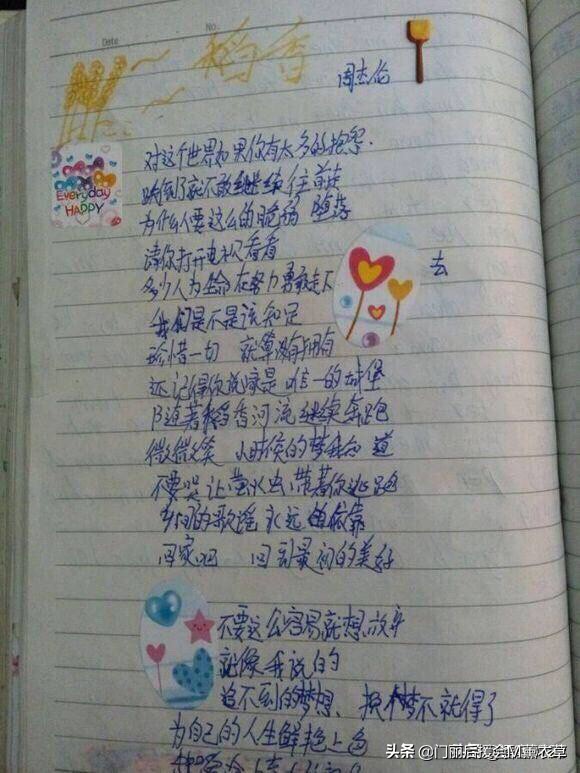 Date No.
稻香
周杰伦
Everyday
HAPPY
对这个世界如果你有太多的抱怨.
跌倒了就不敢继续往前走
为什么人要这么的脆弱 堕落
请你打开电视看看
多少人为生命在努力勇敢走下去
我们是不是该知足
珍惜一切 就算没有拥有
还记得你说家是唯一的城堡
随著稻香河流继续奔跑
微微笑 小时候的梦我知道
不要哭让萤火虫带著你逃跑
乡间的歌谣永远的依靠
回家吧 回到最初的美好
不要这么容易就想放弃
就像我说的
追不到的梦想、换个梦不就得了
为自己的人生鲜艳上色
头条 @门丽后援会M薰衣草